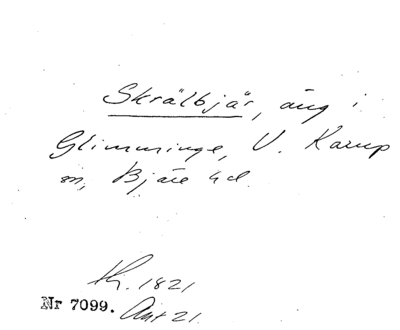 Skrälbjär, äng i
Glimminge, V. Karup
sn, Bjäre hd.
1821
Nr 7099. Akt 21.